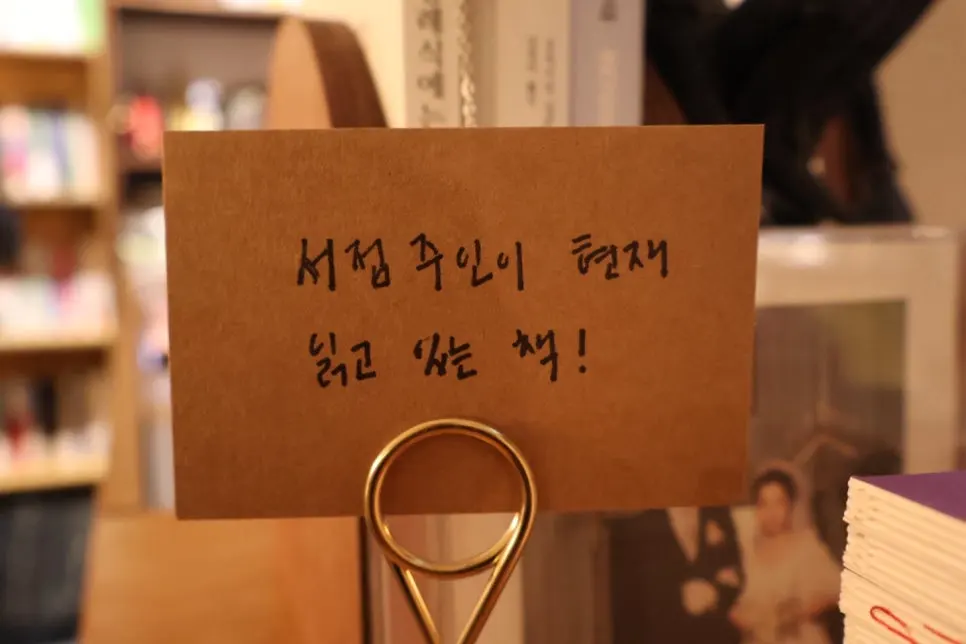 서점 주인이 현재
읽고 있는 책!